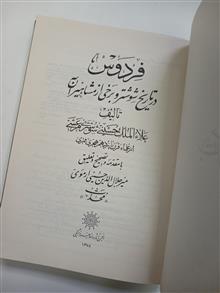 فردوس
در تاریخ شوشتر و برخی از مشاهیر آن
تألیف
علاء الملک حسینی شوشتری مرعشی
از علماء قرن یازدهم هجری قمری
با مقدمه و تصحیح و تعلیق
میر جلال الدین حسینی ارموی
«محدث»